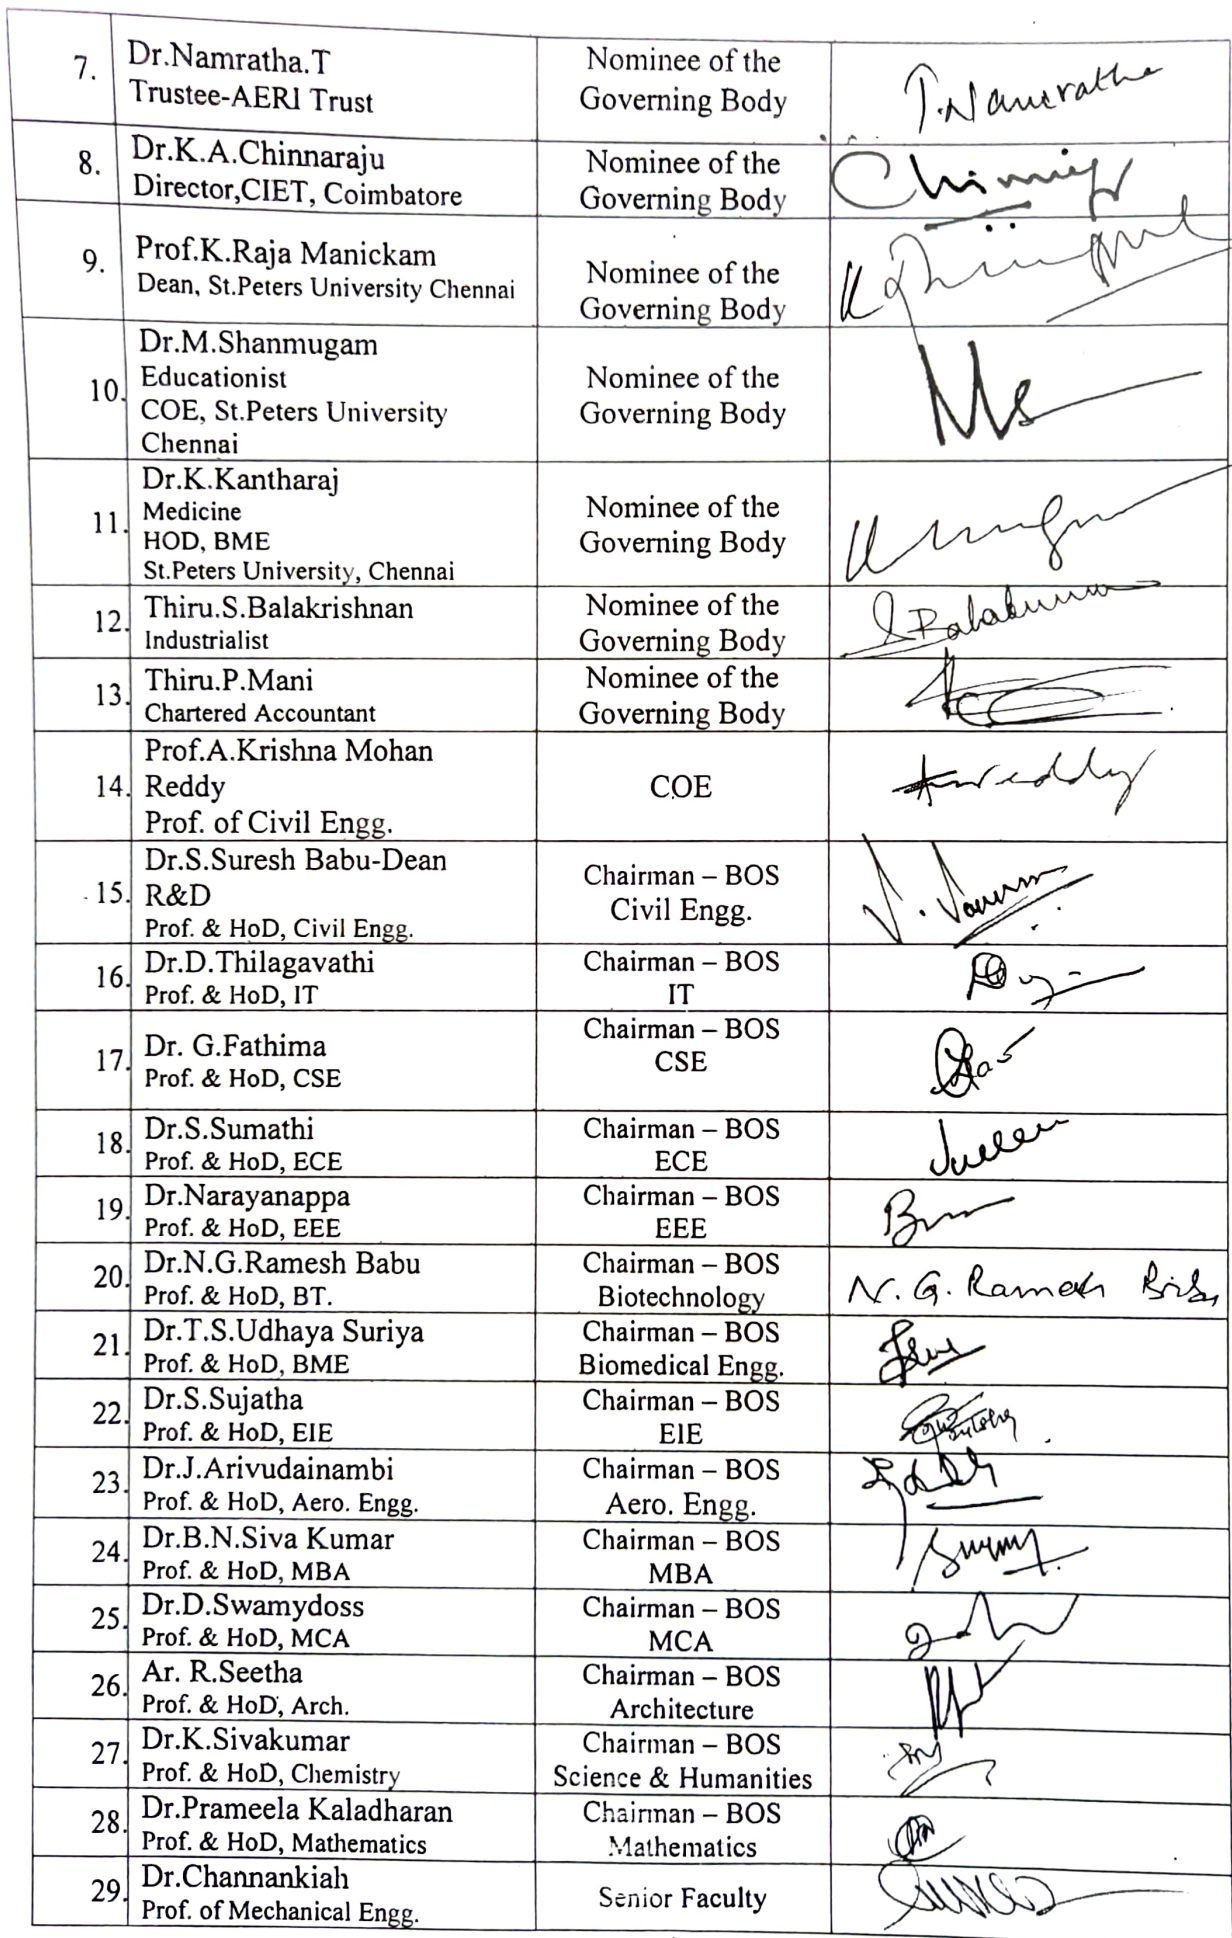 7.
Dr.Namratha.T
Trustee-AERI Trust
Nominee of the
Governing Body
T.Namratha
8.
Dr.K.A.Chinnaraju
Director,CIET, Coimbatore
Nominee of the
Governing Body
9.
Prof.K.Raja Manickam
Dean, St.Peters University Chennai
Nominee of the
Governing Body
10.
Dr.M.Shanmugam
Educationist
COE, St.Peters University
Chennai
Nominee of the
Governing Body
Ms
11.
Dr.K.Kantharaj
Medicine
HOD, BME
St.Peters University, Chennai
Nominee of the
Governing Body
12.
Thiru.S.Balakrishnan
Industrialist
Nominee of the
Governing Body
13.
Thiru.P.Mani
Chartered Accountant
Nominee of the
Governing Body
14.
Prof.A.Krishna Mohan
Reddy
Prof. of Civil Engg.
COE
15.
Dr.S.Suresh Babu-Dean
R&D
Prof. & HoD, Civil Engg.
Chairman – BOS
Civil Engg.
16.
Dr.D.Thilagavathi
Prof. & HoD, IT
Chairman – BOS
IT
17.
Dr. G.Fathima
Prof. & HoD, CSE
Chairman – BOS
CSE
18.
Dr.S.Sumathi
Prof. & HoD, ECE
Chairman – BOS
ECE
19.
Dr.Narayanappa
Prof. & HoD, EEE
Chairman – BOS
EEE
20.
Dr.N.G.Ramesh Babu
Prof. & HoD, BT.
Chairman – BOS
Biotechnology
N. G. Ramesh Babu
21.
Dr.T.S.Udhaya Suriya
Prof. & HoD, BME
Chairman – BOS
Biomedical Engg.
22.
Dr.S.Sujatha
Prof. & HoD, EIE
Chairman – BOS
EIE
23.
Dr.J.Arivudainambi
Prof. & HoD, Aero. Engg.
Chairman – BOS
Aero. Engg.
24.
Dr.B.N.Siva Kumar
Prof. & HoD, MBA
Chairman – BOS
MBA
25.
Dr.D.Swamydoss
Prof. & HoD, MCA
Chairman – BOS
MCA
26.
Ar. R.Seetha
Prof. & HoD, Arch.
Chairman – BOS
Architecture
27.
Dr.K.Sivakumar
Prof. & HoD, Chemistry
Chairman – BOS
Science & Humanities
28.
Dr.Prameela Kaladharan
Prof. & HoD, Mathematics
Chairman – BOS
Mathematics
29.
Dr.Channankiah
Prof. of Mechanical Engg.
Senior Faculty